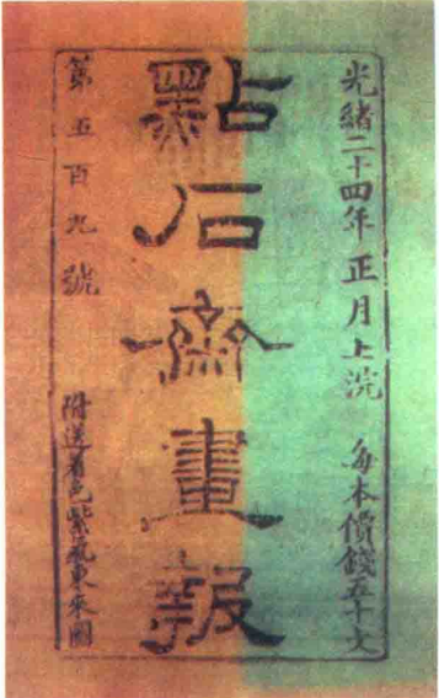 光緒二十四年正月上浣　每本價錢五十文
點石齋畫報
第五百九號　附送着色紫氣東來圖